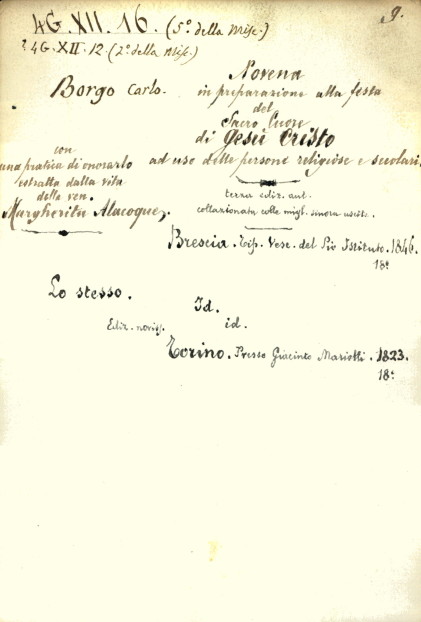 4G. XII. 16. (5º. della Misc.)
9.
? 4G. XII. 12. (2º. della Misc.)
Borgo Carlo.
Novena
in preparazione alla festa
del
Sacro Cuore
di Gesù Cristo
ad uso delle persone religiose e secolari,
con
una pratica di onorarlo
estratta dalla vita
della ven.
Margherita Alacoque,.
terza ediz. aut.
collazionata colle migl. sinora uscite.
Brescia. Tip. Vesc. del Pio Istituto. 1846.
18º
Lo stesso.
Id.
Ediz. noviss.
id.
Torino. Presso Giacinto Marietti. 1823.
18º